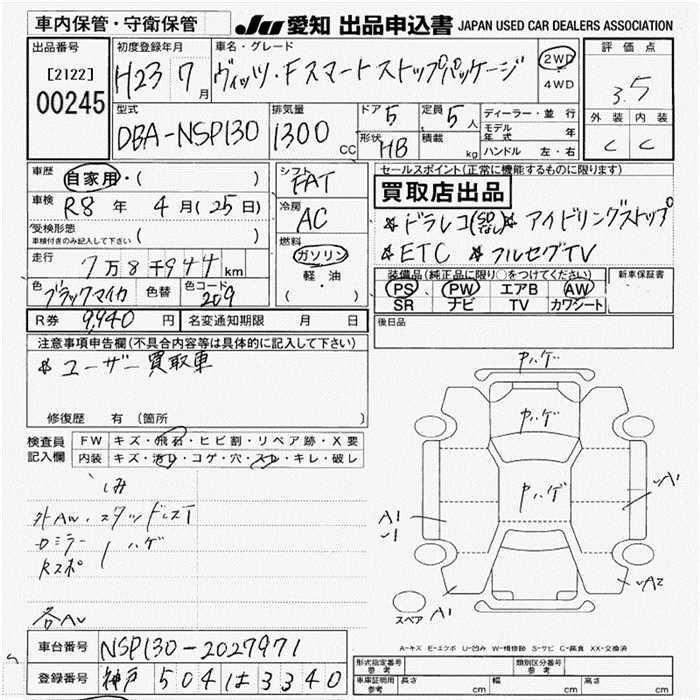 車内保管・守衛保管 JU 愛知 出品申込書 JAPAN USED CAR DEALERS ASSOCIATION
出品番号
[2122]
00245
初度登録年月
H23 7月
車名・グレード
ヴィッツ・Fスマートストップパッケージ
2WD
4WD
評価点
3.5
外装 内装
C C
型式
DBA-NSP130
排気量
1300 CC
ドア 5
定員 5人
形状 HB
積載 kg
ディーラー・並行
モデル年式 年
ハンドル 左・右
車歴 自家用・( )
車検 R8年 4月(25日)
受検形態
車検付きのみ記入して下さい ( )
走行 7万8千944km
色 ブラックマイカ 色替 色コード 209
R券 9,940円 名変通知期限 月 日
シフト
FAT
冷房
AC
燃料
ガソリン
軽・油
( )
セールスポイント(正常に機能するものに限ります)
買取店出品
※ドラレコ ※アイドリングストップ
※ETC ※フルセグTV
装備品(純正品に限り○をつけてください)
PS PW エアB AW
SR ナビ TV カワシート
新車保証書
後日品
注意事項申告欄(不具合内容等は具体的に記入して下さい)
※ユーザー買取車
修復歴 有(箇所 )
検査員記入欄
FW キズ・飛石・ヒビ割・リペア跡・X要
内装 キズ・汚レ・コゲ・穴・スレ・キレ・破レ
しみ
外AW・スタッドレス
ロミラー ハゲ
Rスポ
各AU
中ハゲ
中ハゲ
中ハゲ
A1
A1
A1
A2
スペア
A-キズ E-エクボ U-凹み W-補修跡 S-サビ C-腐食 XX-交換済
車台番号 NSP130-2027971
登録番号 神戸 504 は 3340
形式指定番号 参考
類別区分番号 参考
車庫証明用 参考 長さ cm 幅 cm 高さ cm